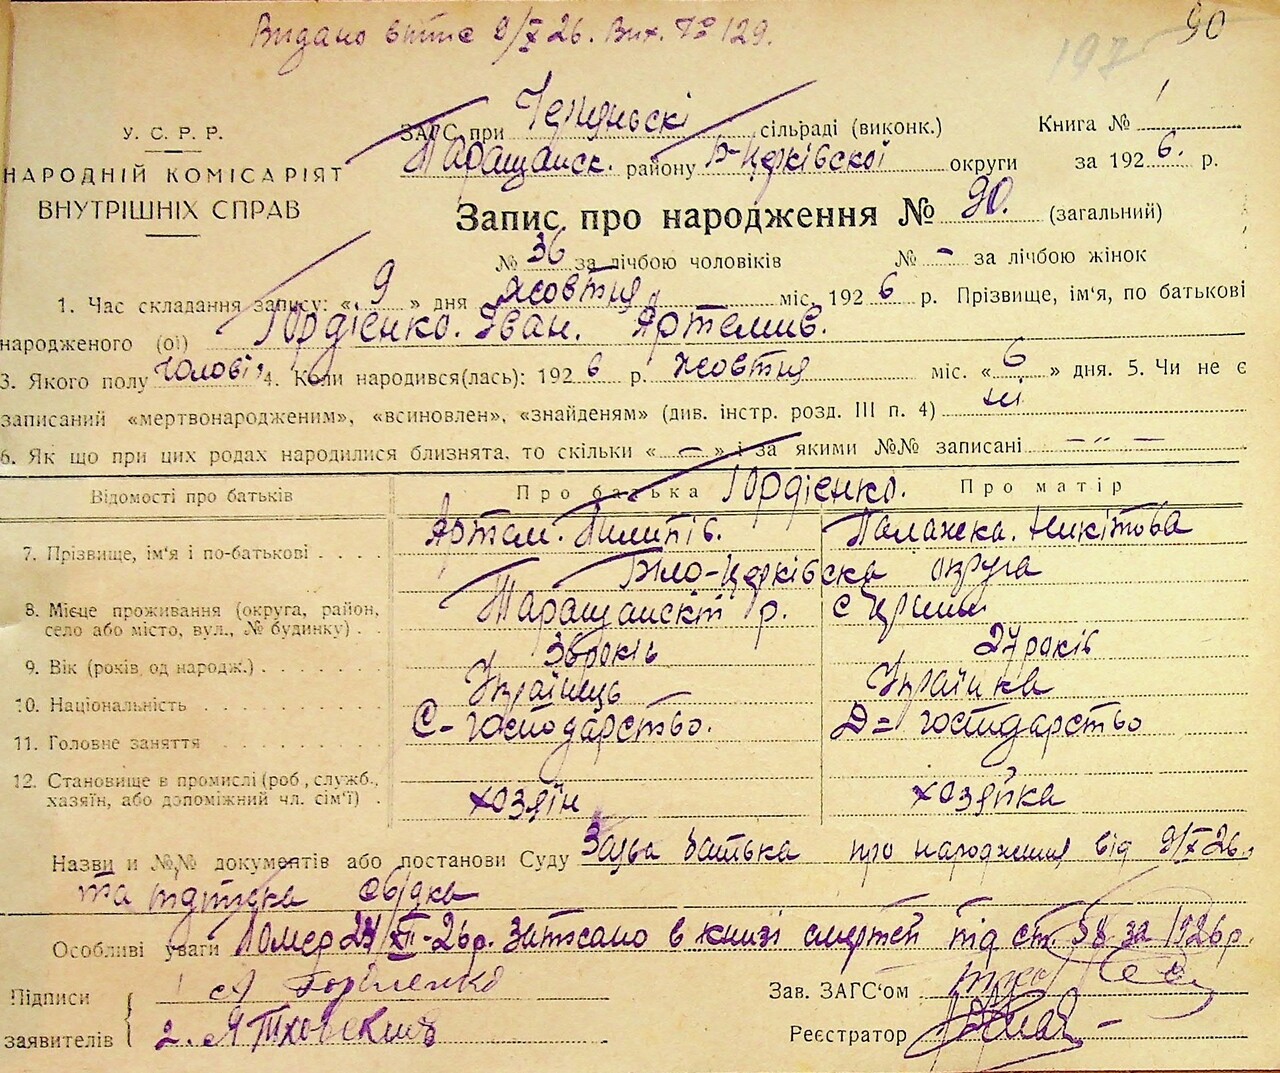 Видано витяг 9/X 26. Вих. № 129.
197 90
У. С. Р. Р.
НАРОДНІЙ КОМІСАРІЯТ
ВНУТРІШНІХ СПРАВ
ЗАГС при сільраді (виконк.) Книга №
Таращанськ. району Б-Церківскої округи за 1926. р.
Запис про народження № 90. (загальний)
№ 36 за лічбою чоловіків № - за лічбою жінок
1. Час складання запису: « 9 » дня жовтня міс. 1926 р. Прізвище, ім'я, по батькові
народженого (ої) Гордієнко. Іван. Артемив.
3. Якого полу чолові 4. Коли народився(лась): 1926 р. жовтня міс. « 6 » дня. 5. Чи не є
записаний «мертвонародженим», «всиновлен», «знайденям» (див. інстр. розд. III п. 4) ні
6. Як що при цих родах народилися близнята, то скільки « — » і за якими №№ записані — „ —
Відомості про батьків Про батька Гордієнко. Про матір
7. Прізвище, ім'я і по-батькові . . . Артем. Пилипів. Палажка. Никітова
Біло-Церківска округа
8. Місце проживання (округа, район, село або місто, вул., № будинку) . . Таращанскій р. с
9. Вік (років од народж.) . 36 років 27 років
10. Національність Українець Українка
11. Головне заняття С-господарство. Д= господарство
12. Становище в промислі (роб., служб., хазяїн, або допоміжний чл. сім'ї) . хозяїн хозяйка
Назви и №№ документів або постанови Суду Заява батька про народження від 9/X 26.
та підписка свідка
Особливі уваги Помер 24/XII-26р. Записано в книзі смертей під ст. 58 за 1926р.
Підписи заявителів { 1 А Гордіенко
2.
Зав. ЗАГС'ом
Реєстратор